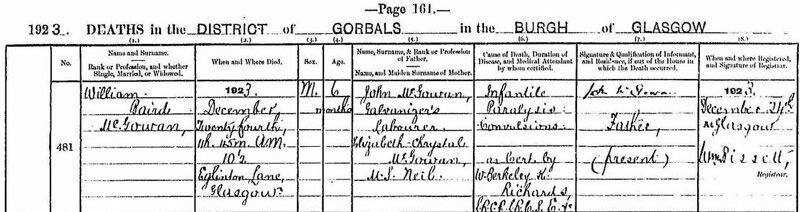 —Page 161.—
1923. DEATHS in the DISTRICT of GORBALS in the BURGH of GLASGOW
(1.) (2.) (3.) (4.) (5.) (6.) (7.) (8.)
Name and Surname.
Rank or Profession, and whether Single, Married, or Widowed.
When and Where Died.
Sex.
Age.
Name, Surname, & Rank or Profession of Father.
Name, and Maiden Surname of Mother.
Cause of Death, Duration of Disease, and Medical Attendant by whom certified.
Signature & Qualification of Informant, and Residence, if out of the House in which the Death occurred.
When and where Registered, and Signature of Registrar.
481
William
Baird
McGowan
1923.
December,
Twenty fourth,
1h. 45m. A.M.
102
Eglinton Lane,
Glasgow.
M.
6
months
John McGowan,
Galvanizer's
Labourer
Elizabeth Chrystal
McGowan,
M.S. Neil.
Infantile
Paralysis
Convulsions
as Cert. by
W. Berkeley K.
Richards,
L.R.C.P., L.R.C.S., E. &c
John McGowan
Father,
(present)
1923.
December 24th
at Glasgow
Wm. Bissett,
Registrar.